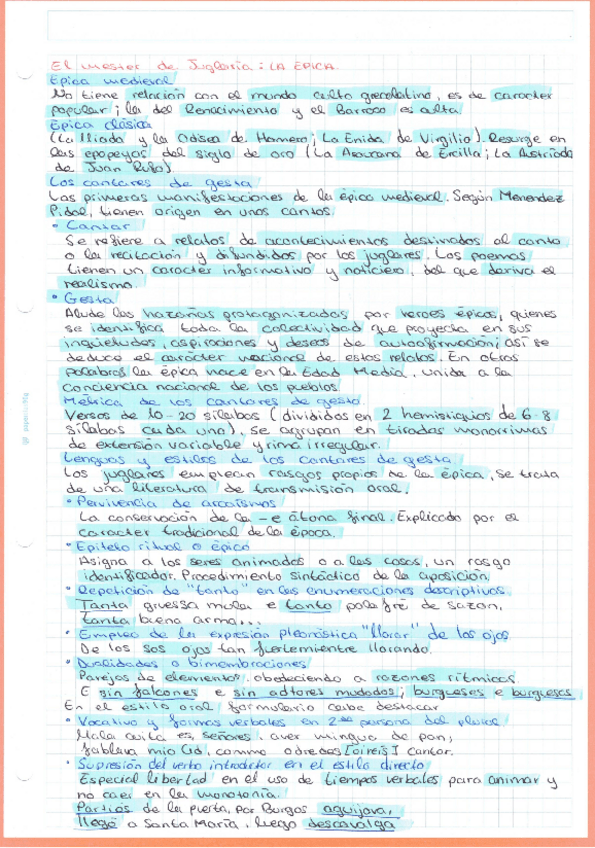 El mester de Juglaría: LA ÉPICA
Épica medieval
No tiene relación con el mundo culto grecolatino, es de carácter
popular; la del Renacimiento y el Barroco es culta
Épica clásica
(La Iliada y la Odisea de Homero; La Enida de Virgilio). Resurge en
las epopeyas del siglo de oro (La Araucana de Ercilla; La Austriada
de Juan Rufo)
Los cantares de gesta
Las primeras manifestaciones de la épica medieval. Según Menendez
Pidal, tienen origen en unos cantos.
• Cantar
Se refiere a relatos de acontecimientos destinados al canto
o la recitación y difundidos por los juglares. Los poemas
tienen un carácter informativo y noticiero, del que deriva el
realismo.
• Gesta
Alude las hazañas protagonizadas por héroes épicos, quienes
se identifica toda la colectividad que proyecta en sus
inquietudes, aspiraciones y deseos de autoafirmación; así se
deduce el carácter nacional de estos relatos. En otras
palabras la épica nace en la Edad Media, unida a la
conciencia nacional de los pueblos.
Métrica de los cantares de gesta
Versos de 10-20 sílabas (divididos en 2 hemistiquios de 6-8
sílabas cada uno), se agrupan en tiradas monorrimas
de extensión variable y rima irregular.
Lenguas y estilos de los cantares de gesta
Los juglares emplean rasgos propios de la épica, se trata
de una literatura de transmisión oral.
• Pervivencia de arcaísmos
La conservación de la -e átona final. Explicado por el
carácter tradicional de la época.
• Epíteto ritual o épico
Asigna a los seres animados o a las cosas, un rasgo
identificador. Procedimiento sintáctico de la aposición
• Repetición de "tanto" en las enumeraciones descriptivas.
Tanta gruessa mula e tanto palafré de sazón,
tanta buena arma...
• Empleo de la expresión pleonástica "llorar" de los ojos
De los sos ojos tan fuertemientre llorando.
• Dualidades o bimembraciones
Parejas de elementos obedeciendo a razones rítmicas.
E sin falcones e sin adtores mudados; burgueses e burguesas
En el estilo oral formulario cabe destacar
• Vocativo y formas verbales en 2ª persona del plural
Mala cuita es, señores, aver mingua de pan;
fablava mio Cid, commo odredes [oireis] cantar.
• Supresión del verbo introductor en el estilo directo
Especial libertad en el uso de tiempos verbales para animar y
no caer en la monotonía.
Partiós de la puerta, por Burgos aguijava,
llegó a Santa María, luego descavalga